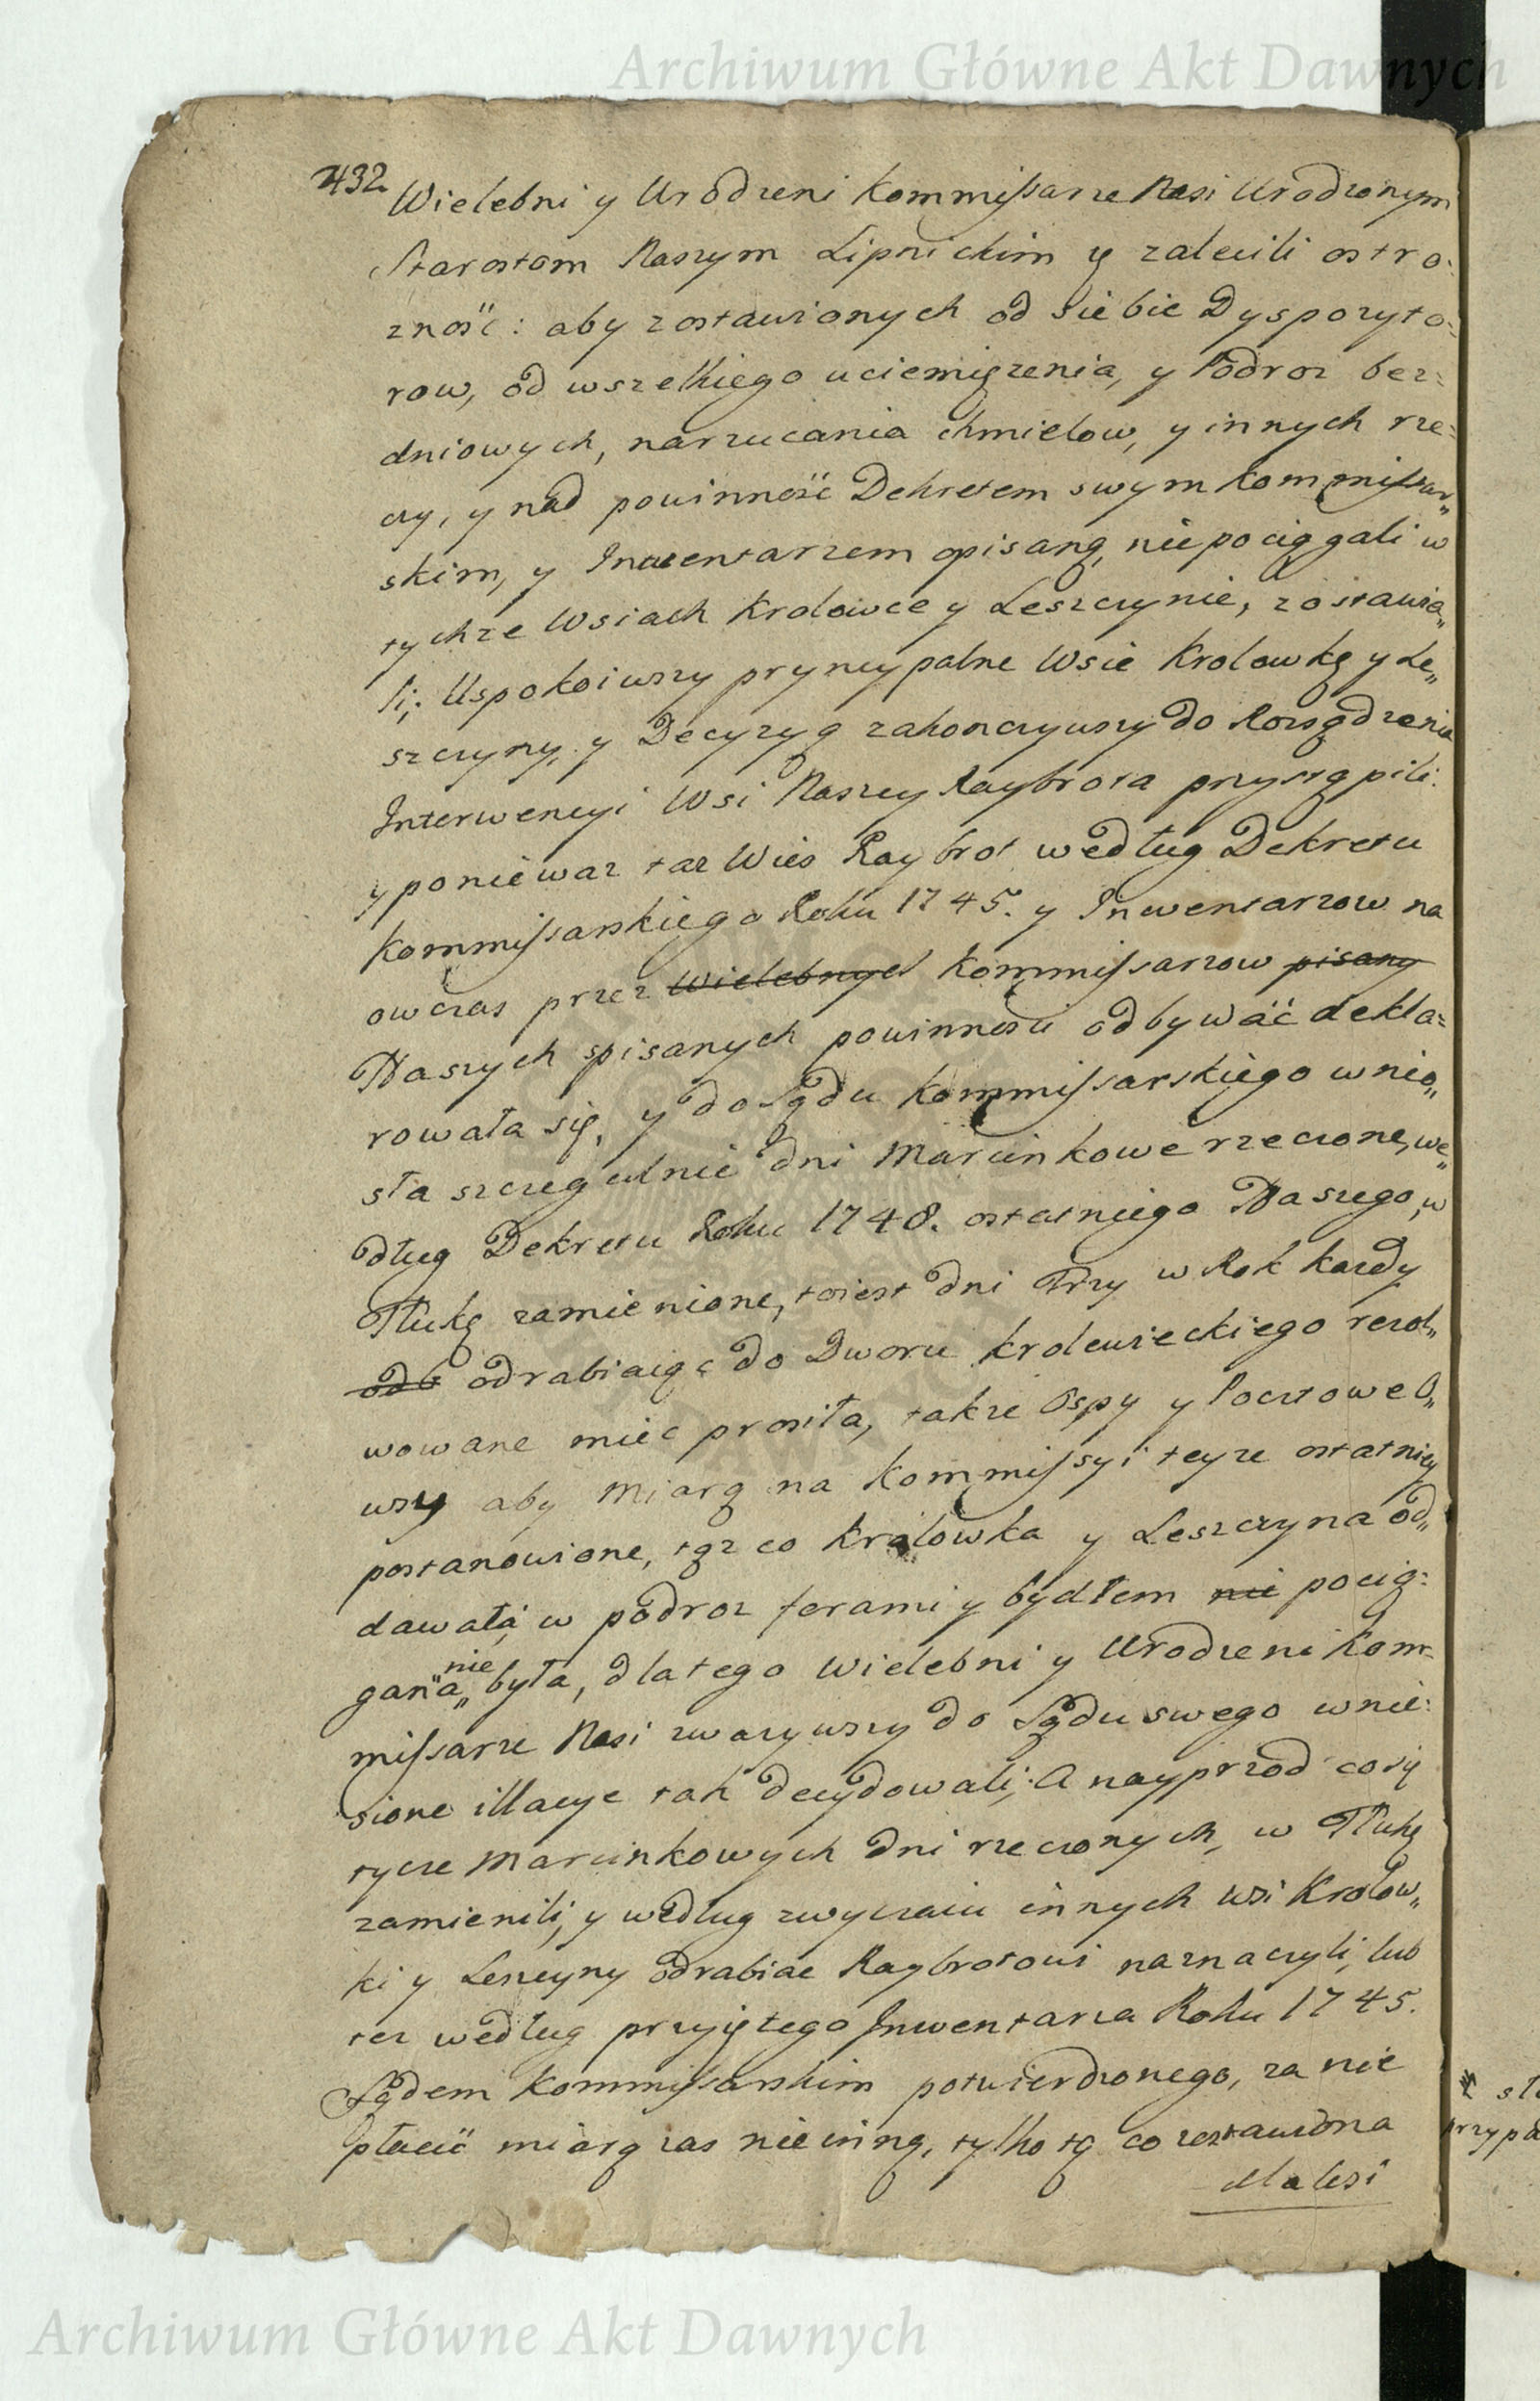 Archiwum Główne Akt Dawnych
432
Wielebni y Urodzeni Kommissarze Nasi Urodzonym
Starostom Naszym Lipnickim y zalecili ostro=
zność: aby zostawionych od Siebie Dyspozyto=
row, od wszelkiego uciemięzenia, y Podroz bez=
dniowych, narzucania chmielow, y innych rze=
czy, y nad powinność Dekretem swym Kommissar„
skim, y Inwentarzem opisaną, nie pociągali w
tychze Wsiach Krolowce y Leszczynie, zostawia„
li; Uspokoiwszy pryncypalne Wsie Krolowkę y Le„
szczyny, y Decyzyą zakonczywszy do Rozsądzenia
Interwencyi Wsi Naszey Raybrota przystąpili:
y poniewaz taz Wies Raybrot według Dekretu
Kommissarskiego Roku 1745. y Inwentarzow na
owczas przez Wielebnych Kommissarzow pisany
Naszych spisanych powinnosci odbywać dekla=
rowała się, y do Sądu Kommissarskiego wnio„
sła szczegulnie dni Marcinkowe rzeczone, we„
dług Dekretu Roku 1748. ostatniego Naszego, w
Tłukę zamienione, toiest dni Trzy w Rok kazdy
odb odrabiaiąc do Dworu Krolewieckiego rezol„
wowane miec prosiła, takze Ospy y Pocztowe O„
wsy aby Miarą na Kommissyi teyze ostatniey
postanowione, tąz co Krolowka y Leszczyna od„
dawała, w podroz forami y bydłem nie pocią=
gana„ nie była, dlatego Wielebni y Urodzeni Kom=
missarze Nasi zwazywszy do Sądu swego wnie=
sione illacye tak decydowali; A nayprzod co się
tycze Marcinkowych dni rzeczonych, w Tłukę
zamienili, y według zwyczaiu innych wsi Krolow„
ki y Lesczyny odrabiac Raybrotowi naznaczyli, lub
tez według przyiętego Inwentarza Roku 1745.
Sądem Kommissarskim potwierdzonego, za nie
płacić miarą zas nie inną, tylko tą co zostawiona
dla Wsi
przypa
Archiwum Główne Akt Dawnych